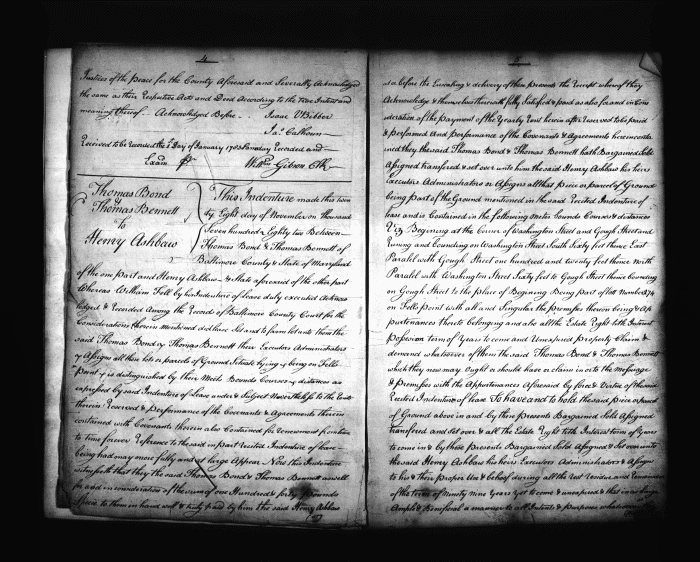 4
Justices of the Peace for the County Aforesaid and Severally Acknowledged
the same as their Respective Acts and Deed According to the true Intent and
meaning thereof - Acknowledged Before - Isaac VBibber
Jas. Calhoun
Received to be recorded the 2d day of January 1783 Same day Recorded and
Exam pr Wm Gibson Clk
Thomas Bond
&
Thomas Bennett
to
Henry Ashbaw
This Indenture made this twen
ty Eight day of November one thousand
Seven hundred & Eighty two Between
Thomas Bond & Thomas Bennett of
Baltimore County & State of Maryland
of the one part and Henry Ashbaw & State aforesaid of the other part
Whereas William Fell by his Indenture of Lease duly executed Acknow
ledged & Recorded Among the Records of Baltimore County Court for the
Considerations therein Mentioned did leave Set and to farm let unto them the
said Thomas Bond & Thomas Bennett their Executors Administrators
& Assigns all them lots or parcels of Ground Situate lying & being on Fells
Point & is distinguished by their Meets Bounds Courses & distances as
expressed by said Indenture of Lease under & Subject Nevertheless to the Rents
therein Reserved & Performance of the Covenants & Agreements therein
contained with Covenants therein also Contained for Renewment from time
to time forever Reference to the said in part Recited Indenture of lease
being had may more fully and at large Appear - Now this Indenture
witnesseth that they the said Thomas Bond & Thomas Bennett as well
for and in consideration of the sum of one Hundred & forty Pounds
Specie to them in hand well & truly paid by him the said Henry Ashbaw
5
at & before the Ensealing & delivery of these presents the Receipt whereof they
Acknowledge & themselves therewith fully Satisfied & paid as also for and in Consi
deration of the Payment of the Yearly Rent herein after Reserved to be paid
& performed And performance of the Covenants & Agreements herein conten
ned they the said Thomas Bond & Thomas Bennett hath Bargained Sold
Assigned transfered & set over unto him the said Henry Ashbaw his heirs
Executors Administrators or Assigns all that piece or parcel of Ground
being part of the Ground mentioned in the said Recited Indenture of
lease and is Contained in the following Metes Bounds Courses & distances
Viz Beginning at the Corner of Washington Street and Gough Street and
Runing and bounding on Washington Street South Sixty feet thence East
Paralel with Gough Street one hundred and twenty feet thence North
Paralel with Washington Street Sixty feet to Gough Street thence bounding
on Gough Street to the place of Beginning Being part of lot Number 374
on Fells point with all and Singular the premises thereon being & Ap
purtenances thereto belonging and also all the Estate Right title Interest
Possession term of Years to come and Unexpired Property Claim &
demand whatsoever of them the said Thomas Bond & Thomas Bennett
which they now may Ought or should have or claim in or to the Messuage
& Premises with the Appurtenances Aforesaid by force & Virtue of the said
Recited Indenture of lease To have and to hold the said piece or parcel
of Ground above in and by these presents Bargained Sold Assigned
transfered and set over & all the Estate Right title Interest term of Years
to come in & by these Presents Bargained Sold Assigned & Set over unto
the said Henry Ashbaw his heirs Executors Administrators & Assigns
to his & their Proper Use & behoof during all the Rest Residue and Remainder
of the term of Ninety nine Years Yet to come & unexpired & that in as large
Ample & Beneficial a manner to all Intents & purposes whatsoever